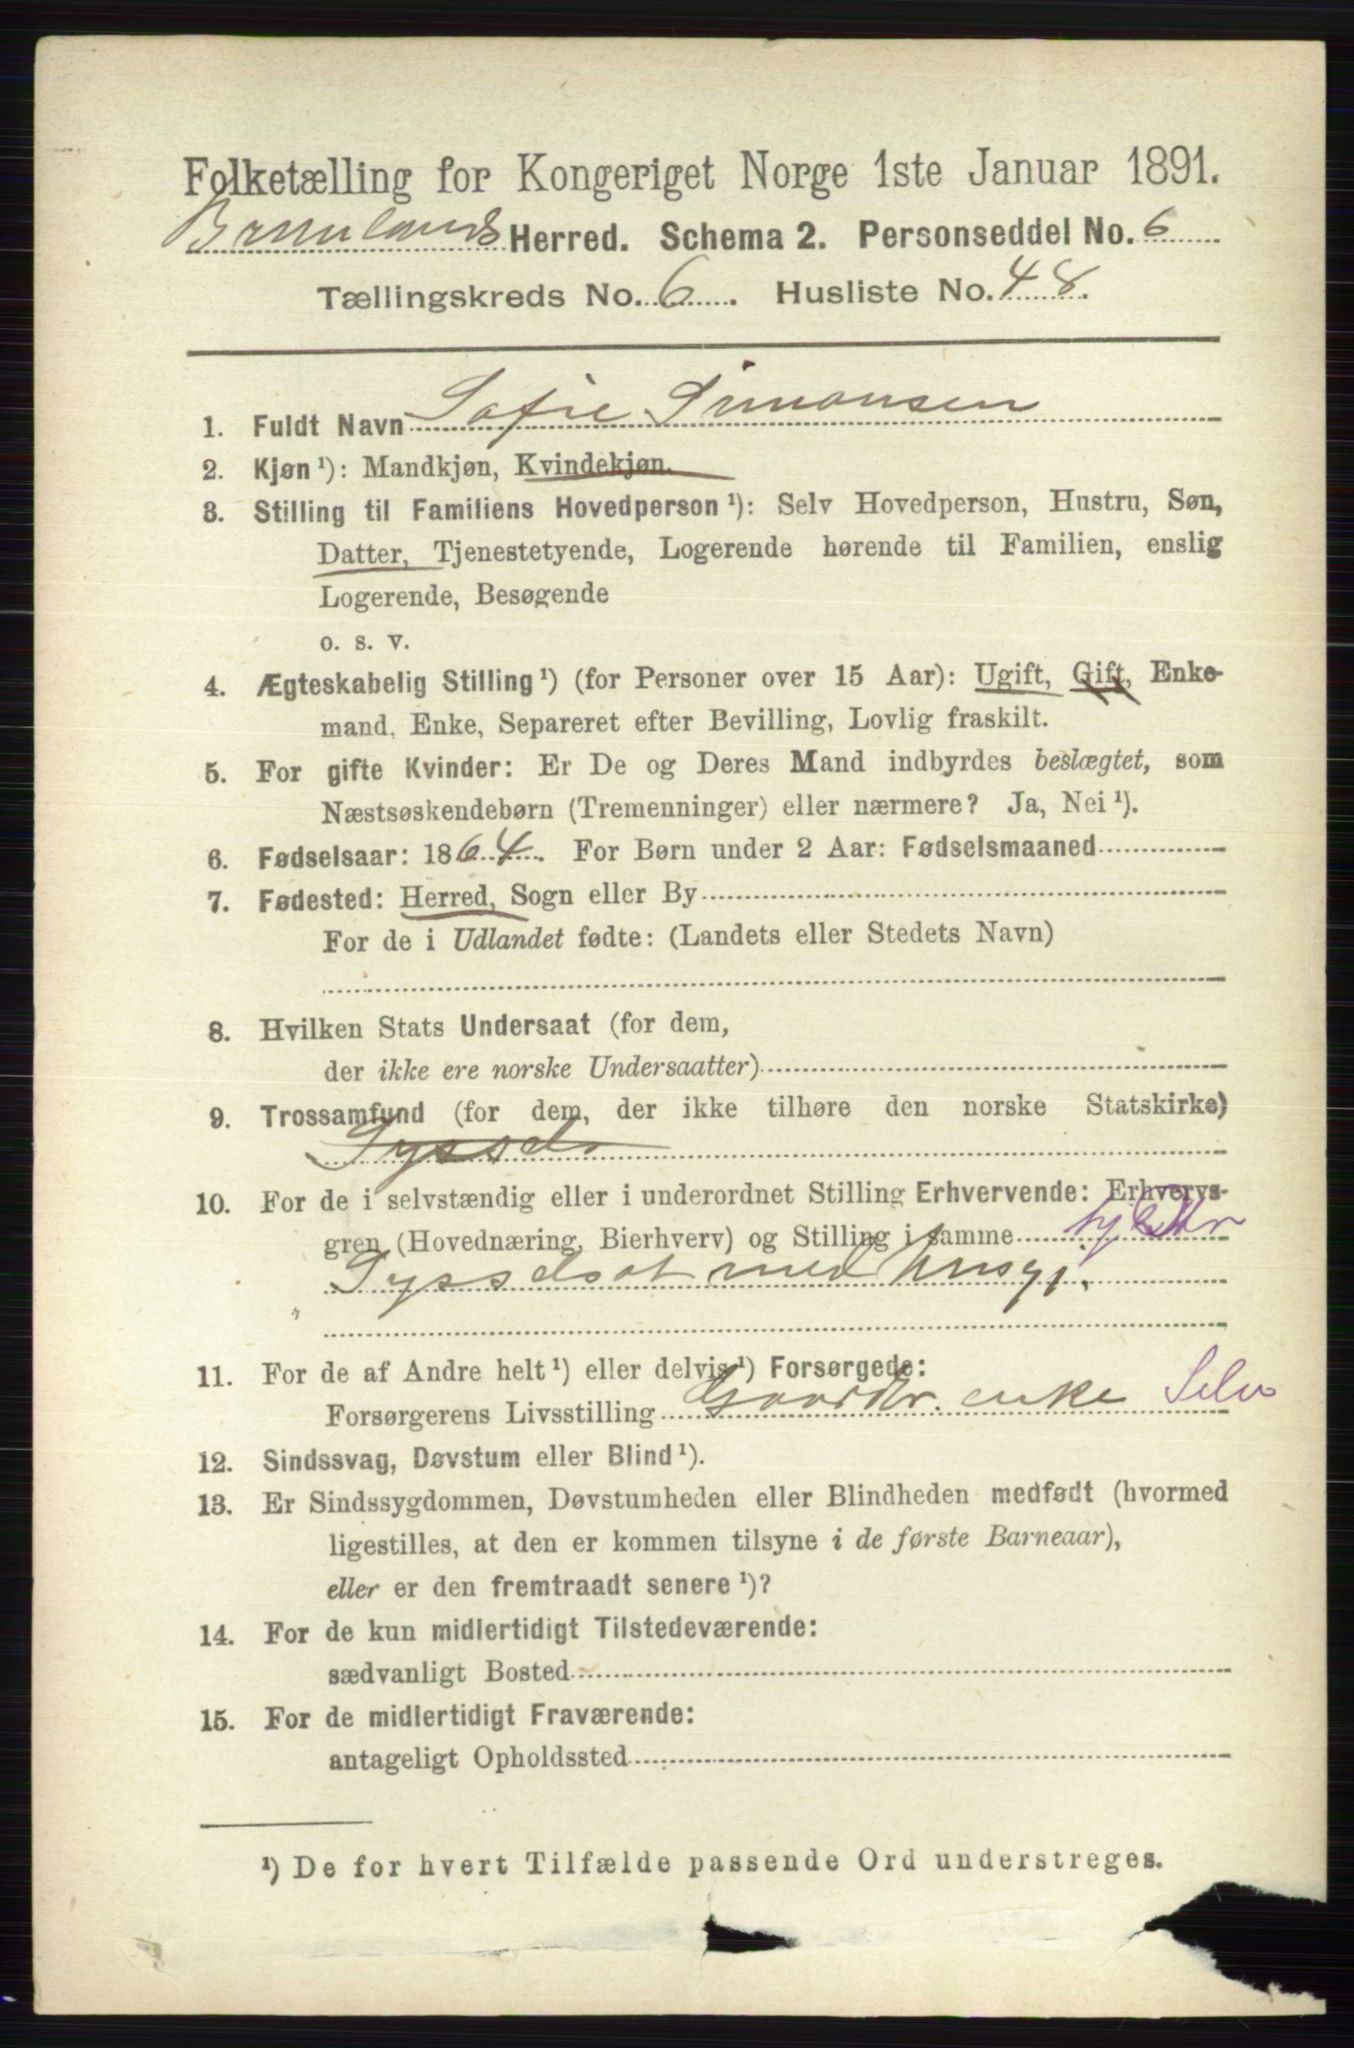 Folketælling for Kongeriget Norge 1ste Januar 1891.
Brunlanes Herred. Schema 2. Personseddel No. 6
Tællingskreds No. 6. Husliste No. 48.
1. Fuldt Navn Sofie Simonsen
2. Kjøn¹): Mandkjøn, Kvindekjøn.
3. Stilling til Familiens Hovedperson¹): Selv Hovedperson, Hustru, Søn,
Datter, Tjenestetyende, Logerende hørende til Familien, enslig
Logerende, Besøgende
o. s. v.
4. Ægteskabelig Stilling¹) (for Personer over 15 Aar): Ugift, Gift, Enke-
mand, Enke, Separeret efter Bevilling, Lovlig fraskilt.
5. For gifte Kvinder: Er De og Deres Mand indbyrdes beslægtet, som
Næstsøskendebørn (Tremenninger) eller nærmere? Ja, Nei¹).
6. Fødselsaar: 1864. For Børn under 2 Aar: Fødselsmaaned
7. Fødested: Herred, Sogn eller By
For de i Udlandet fødte: (Landets eller Stedets Navn)
8. Hvilken Stats Undersaat (for dem,
der ikke ere norske Undersaatter)
9. Trossamfund (for dem, der ikke tilhøre den norske Statskirke)
Syssels
10. For de i selvstændig eller i underordnet Stilling Erhvervende: Erhvervs-
gren (Hovednæring, Bierhverv) og Stilling i samme
Sysselsat med husgj.
11. For de af Andre helt¹) eller delvis¹) Forsørgede:
Forsørgerens Livsstilling Gaardbr. enke Selv
12. Sindssvag, Døvstum eller Blind¹).
13. Er Sindssygdommen, Døvstumheden eller Blindheden medfødt (hvormed
ligestilles, at den er kommen tilsyne i de første Barneaar),
eller er den fremtraadt senere¹)?
14. For de kun midlertidigt Tilstedeværende:
sædvanligt Bosted
15. For de midlertidigt Fraværende:
antageligt Opholdssted
¹) De for hvert Tilfælde passende Ord understreges.